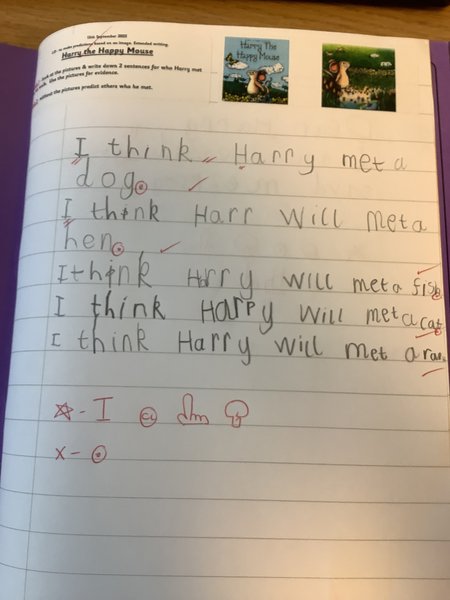 15th September 2025
LO: to make predictions based on an image. Extended writing.
Harry the Happy Mouse
look at the pictures & write down 2 sentences for who Harry met
Use the pictures for evidence.
without the pictures predict others who he met.
Harry The
Happy Mouse
I think Harry met a
dog.
I think Harr will met a
hen.
I think Harry will met a fish.
I think Harry will met a cat.
I think Harry will met a
I
x -